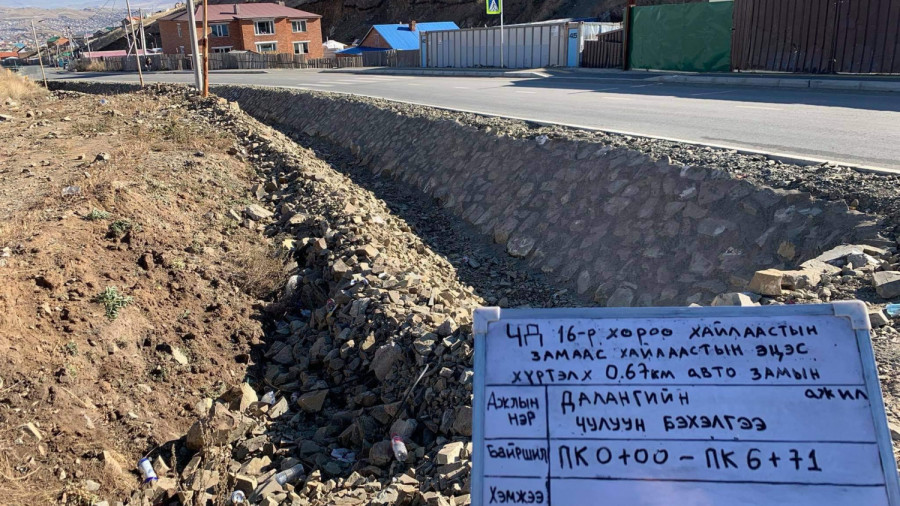 ЧД 16-р хороо Хайлаастын
замаас Хайлаастын эцэс
хүртэлх 0.67км авто замын
ажил
Ажлын нэр
Далангийн
чулуун бэхэлгээ
Байршил ПК 0+00 - ПК 6+71
Хэмжээ